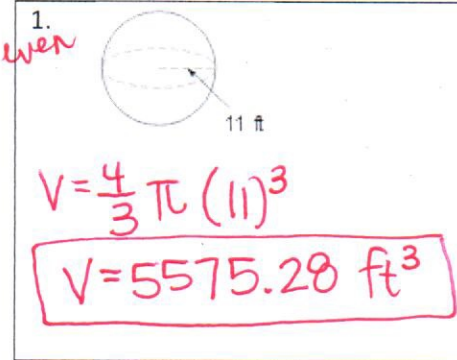 1.
even
11 ft
V = 4/3 π (11)³
V = 5575.28 ft³